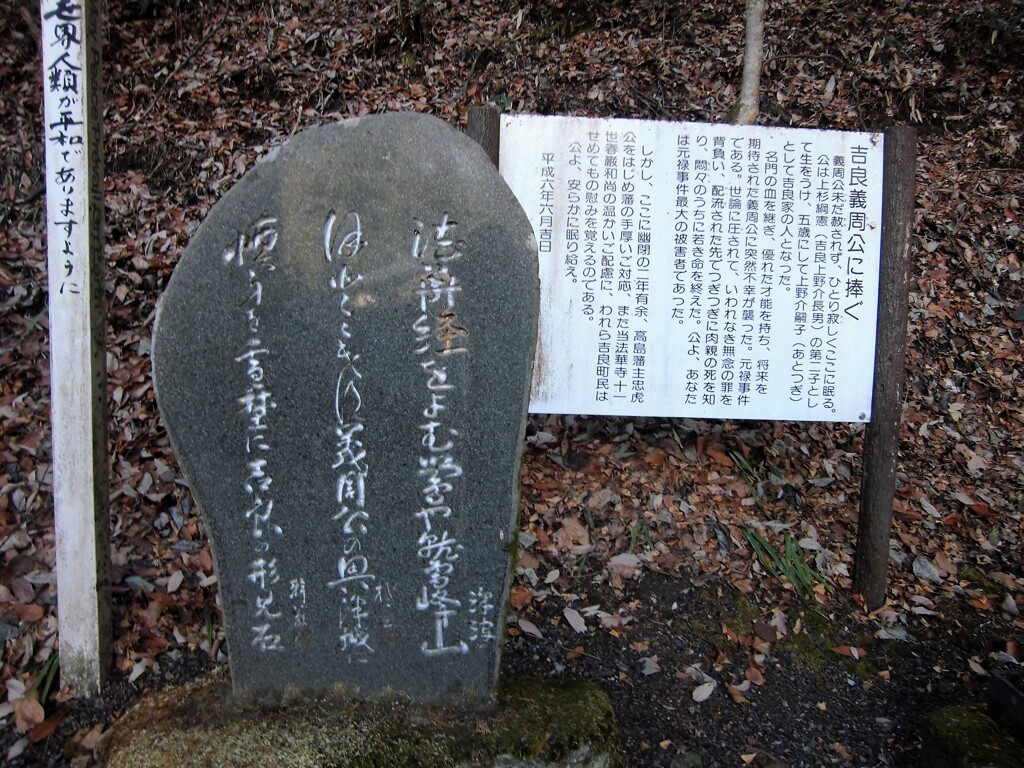 世界人類が平和でありますように
吉良義周公に捧ぐ
義周公未だ赦されず、ひとり寂しくここに眠る。
公は上杉綱憲(吉良上野介長男)の第二子とし
て生をうけ、五歳にして上野介嗣子(あとつぎ)
として吉良家の人となった。
名門の血を継ぎ、優れた才能を持ち、将来を
期待された義周公に突然不幸が襲った。元禄事件
である。世論に圧されて、いわれなき無念の罪を
背負い、配流された先でつぎつぎに肉親の死を知
り、悶々のうちに若き命を終えた。公よ、あなた
は元禄事件最大の被害者であった。
しかし、ここに幽閉の二年有余、高島藩主忠虎
公をはじめ藩の手厚いご対応、また当法華寺十一
世春巌和尚の温かいご配慮に、われら吉良町民は
せめてもの慰みを覚えるのである。
公よ、安らかに眠り給え。
平成六年六月吉日
法華経をよむ鶯や鷲峰山
義周公の奥津城に
吉良の形見石